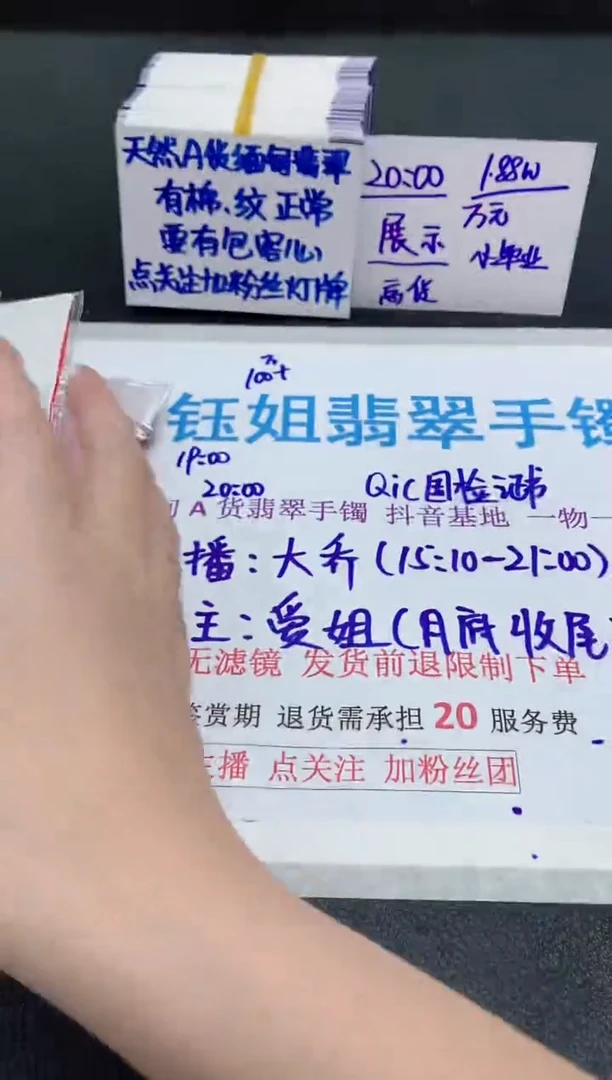 天然A货缅甸翡翠
有棉、纹 正常
要有包容心
点关注加粉丝灯牌
20:00
展示
高货
1.88W
万元
小毕业
100万+
钰姐翡翠手镯
19:00
20:00
QiC国检证书
A 货翡翠手镯 抖音基地 一物一
播:大乔(15:10-21:00)
主:爱姐(月底收尾
无滤镜 发货前退限制下单
鉴赏期 退货需承担 20 服务费
主播 点关注 加粉丝团